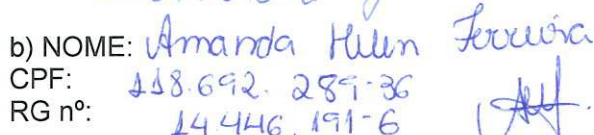 b) NOME: Amanda Hellen Ferreira
CPF: 118.692.289-36
RG nº: 14.446.191-6